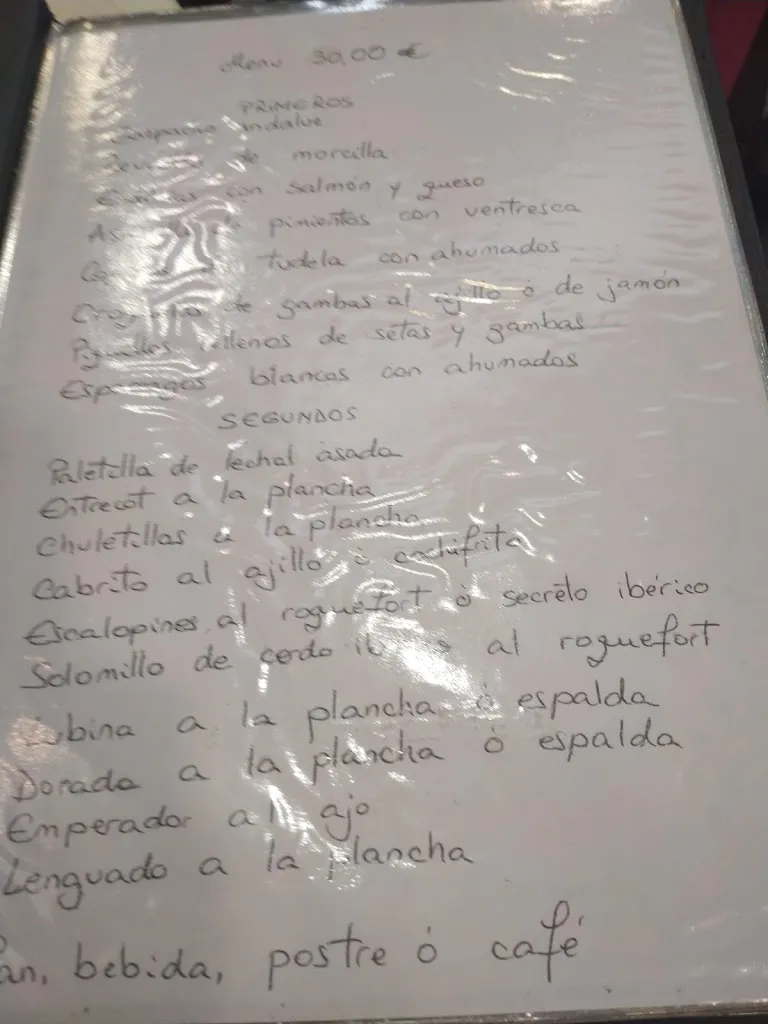 Menú 30,00 €
PRIMEROS
Gazpacho andaluz
de morcilla
con salmón y queso
pimientos con ventresca
tudela con ahumados
de gambas al ajillo ó de jamón
rellenos de setas y gambas
Esparragos blancos con ahumados
SEGUNDOS
Paletilla de lechal asada
Entrecot a la plancha
Chuletillas a la plancha
Cabrito al ajillo ó cochifrito
Escalopines al roquefort ó secreto ibérico
Solomillo de cerdo al roquefort
Lubina a la plancha ó espalda
Dorada a la plancha ó espalda
Emperador al ajo
Lenguado a la plancha
Pan, bebida, postre ó café